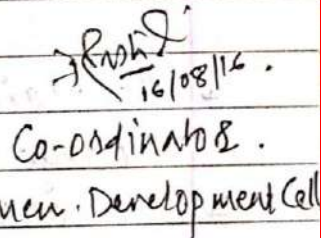 16/08/16.
Co-ordinator.
men. Development Cell